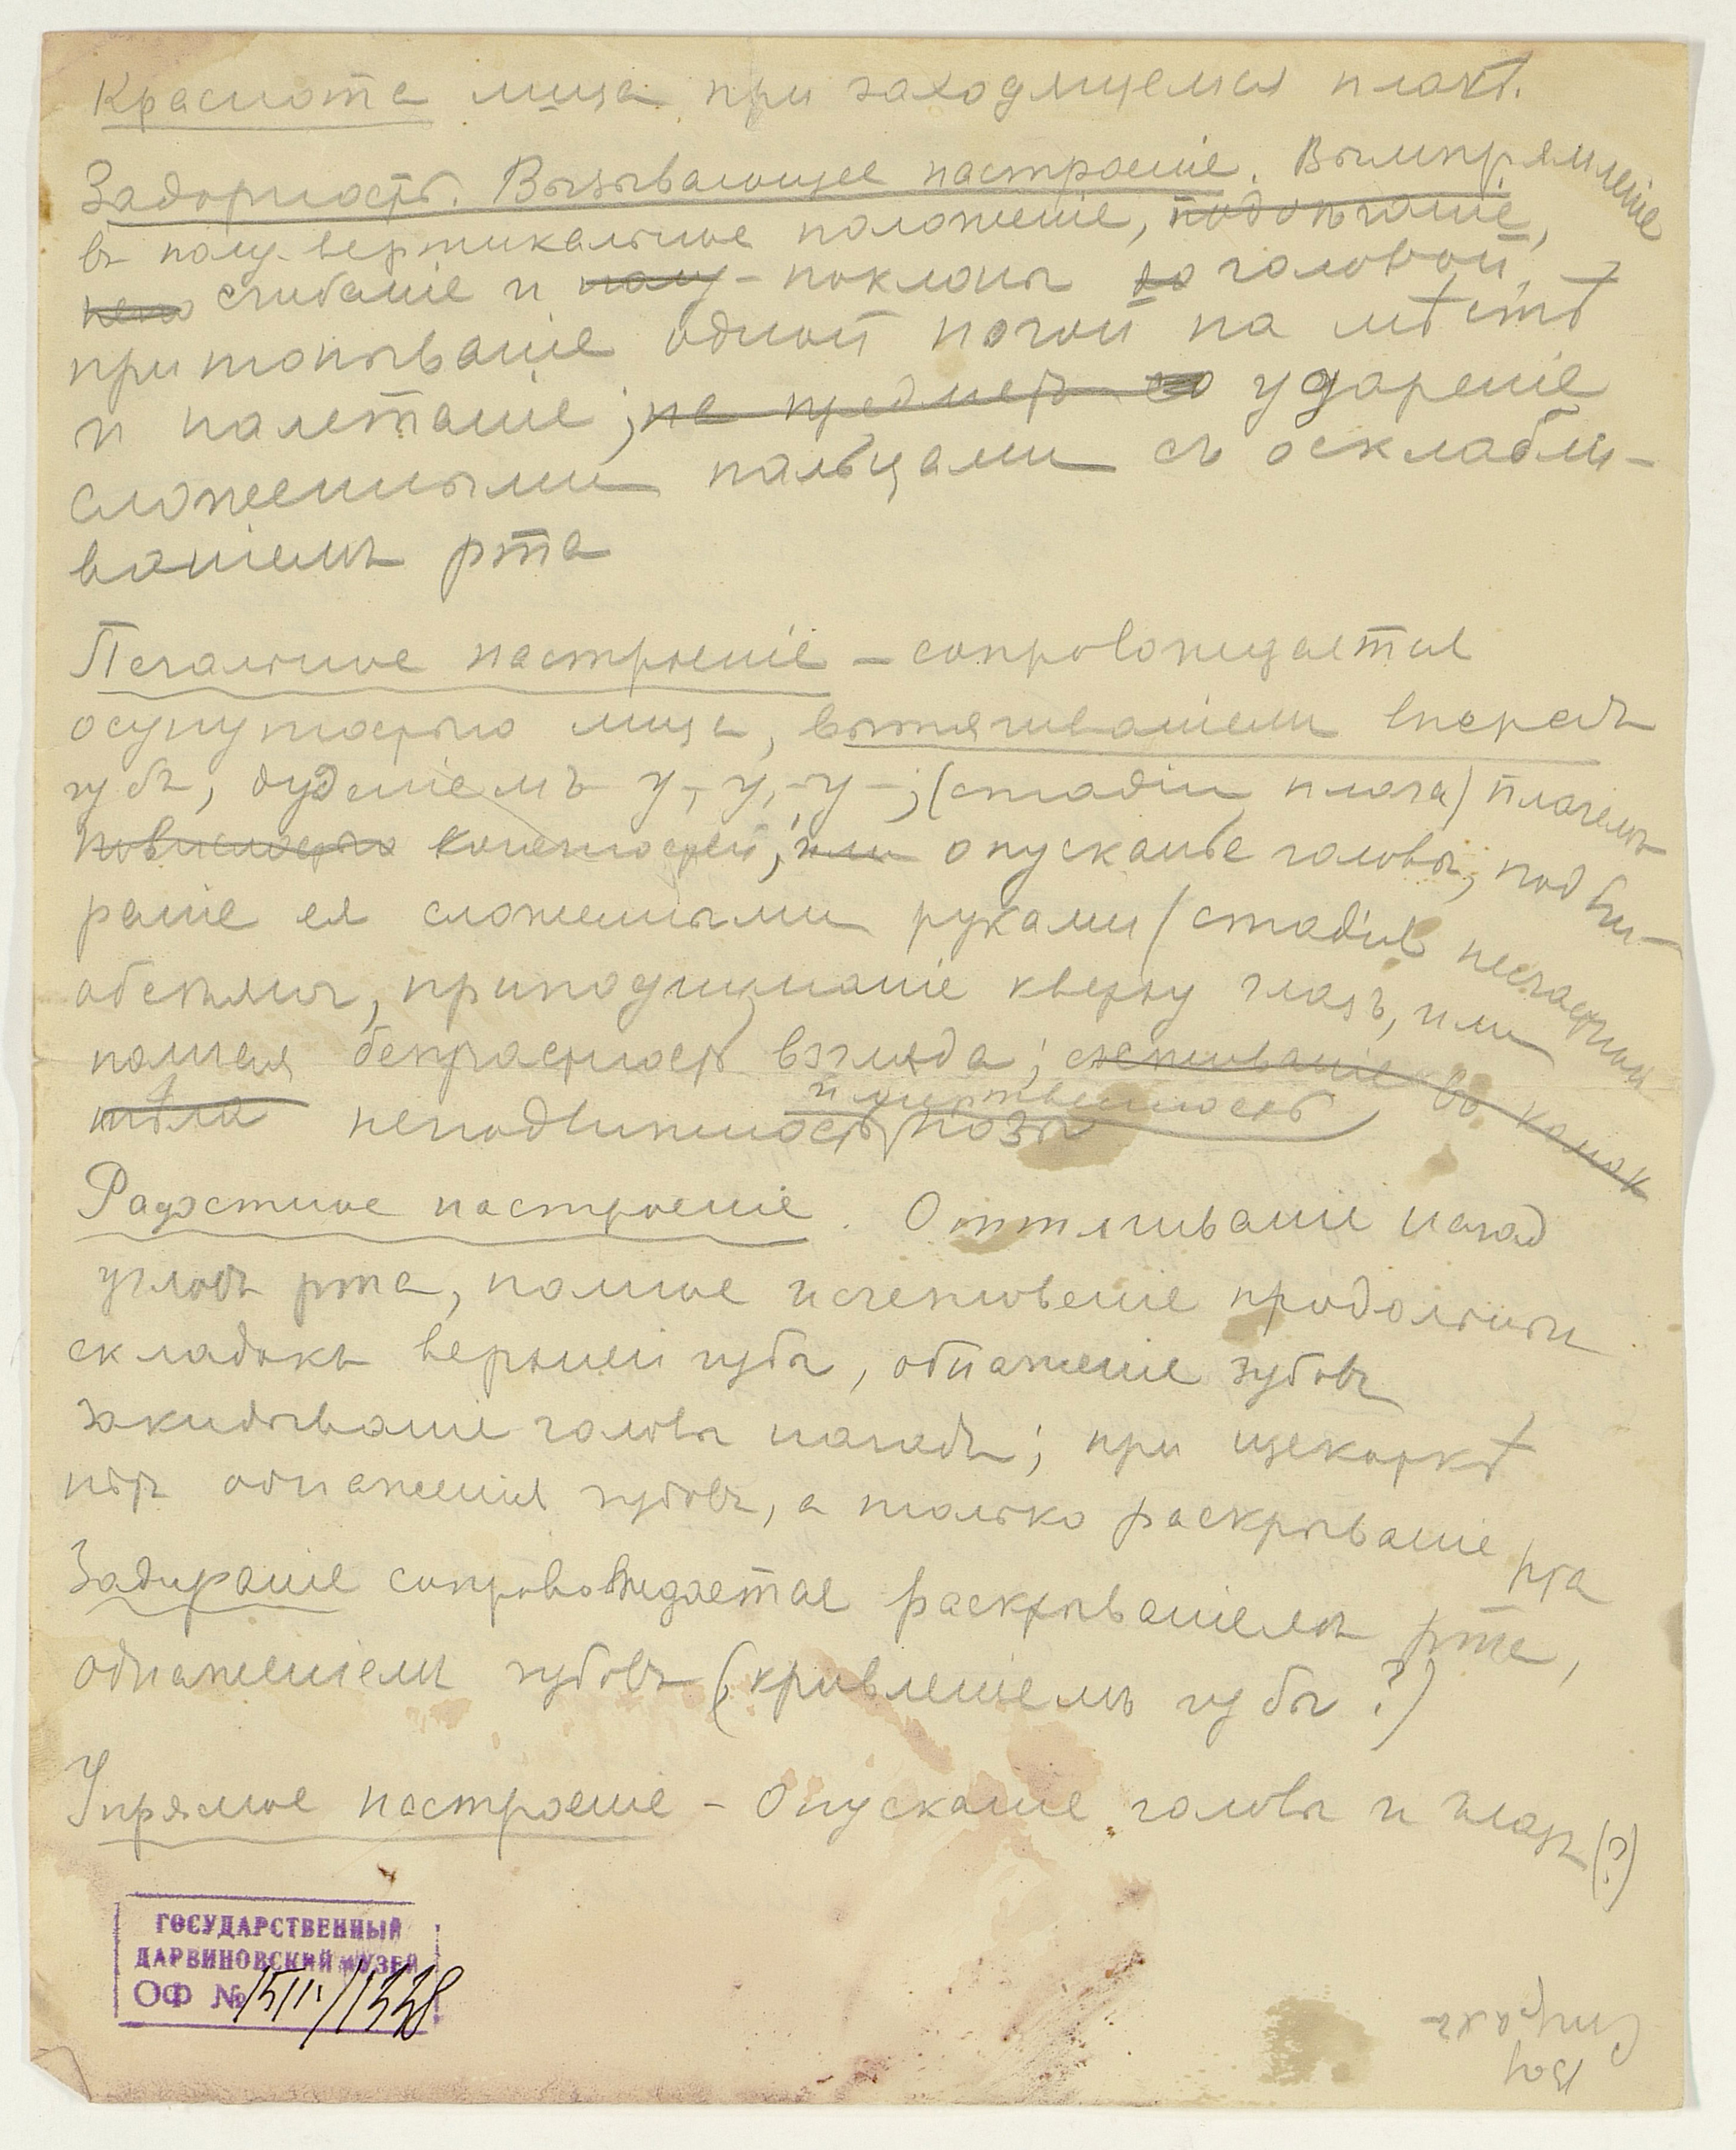 Краснота лица при заходящемся плачѣ.
Задорность. Вызывающее настроеніе. Выпрямленіе
въ полу-вертикальное положеніе,
сгибаніе и полу-поклоны головой,
притопываніе одной ногой на мѣстѣ
и налетаніе; на предметъ со удареніе
сложенными пальцами съ осклабли-
ваніемъ рта
Печальное настроеніе – сопровождается
осунутостью лица, вытягиваніемъ впередъ
губъ, гудѣніемъ у-, у,-у-; (стадія плача) плачемъ
повислостью конечностей, или опусканіе головы, подби-
раніе ея сложенными руками (стадія несчастной
обезьяны, приподыманіе кверху глазъ, или
полная безстрастность взгляда; съеживаніе во комок
тѣла неподвижность позы
и мертвенность
Радостное настроеніе. Оттягиваніе назад
угловъ рта, полное исчезновеніе продольных
складокъ верхней губы, обнаженіе зубовъ
закидываніе головы назадъ; при щекоткѣ
нѣтъ обнаженія зубовъ, а только раскрываніе рта
Задираніе сопровождается раскрываніемъ рта,
обнаженіемъ зубовъ (кривленіемъ губы?)
Упрямое настроеніе – Опусканіе головы и глазъ (?)
ГОСУДАРСТВЕННЫЙ
ДАРВИНОВСКИЙ МУЗЕЙ
ОФ №
Страхъ